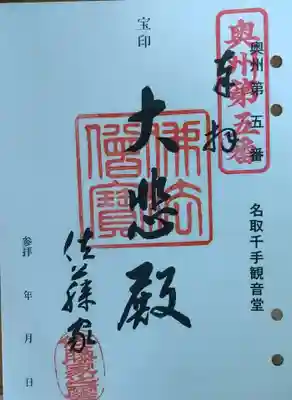 奥州第五番
奥州第五番
奉拝
名取千手観音堂
宝印
大悲殿
佛法僧寳
佐藤家
参拝　年　月　日